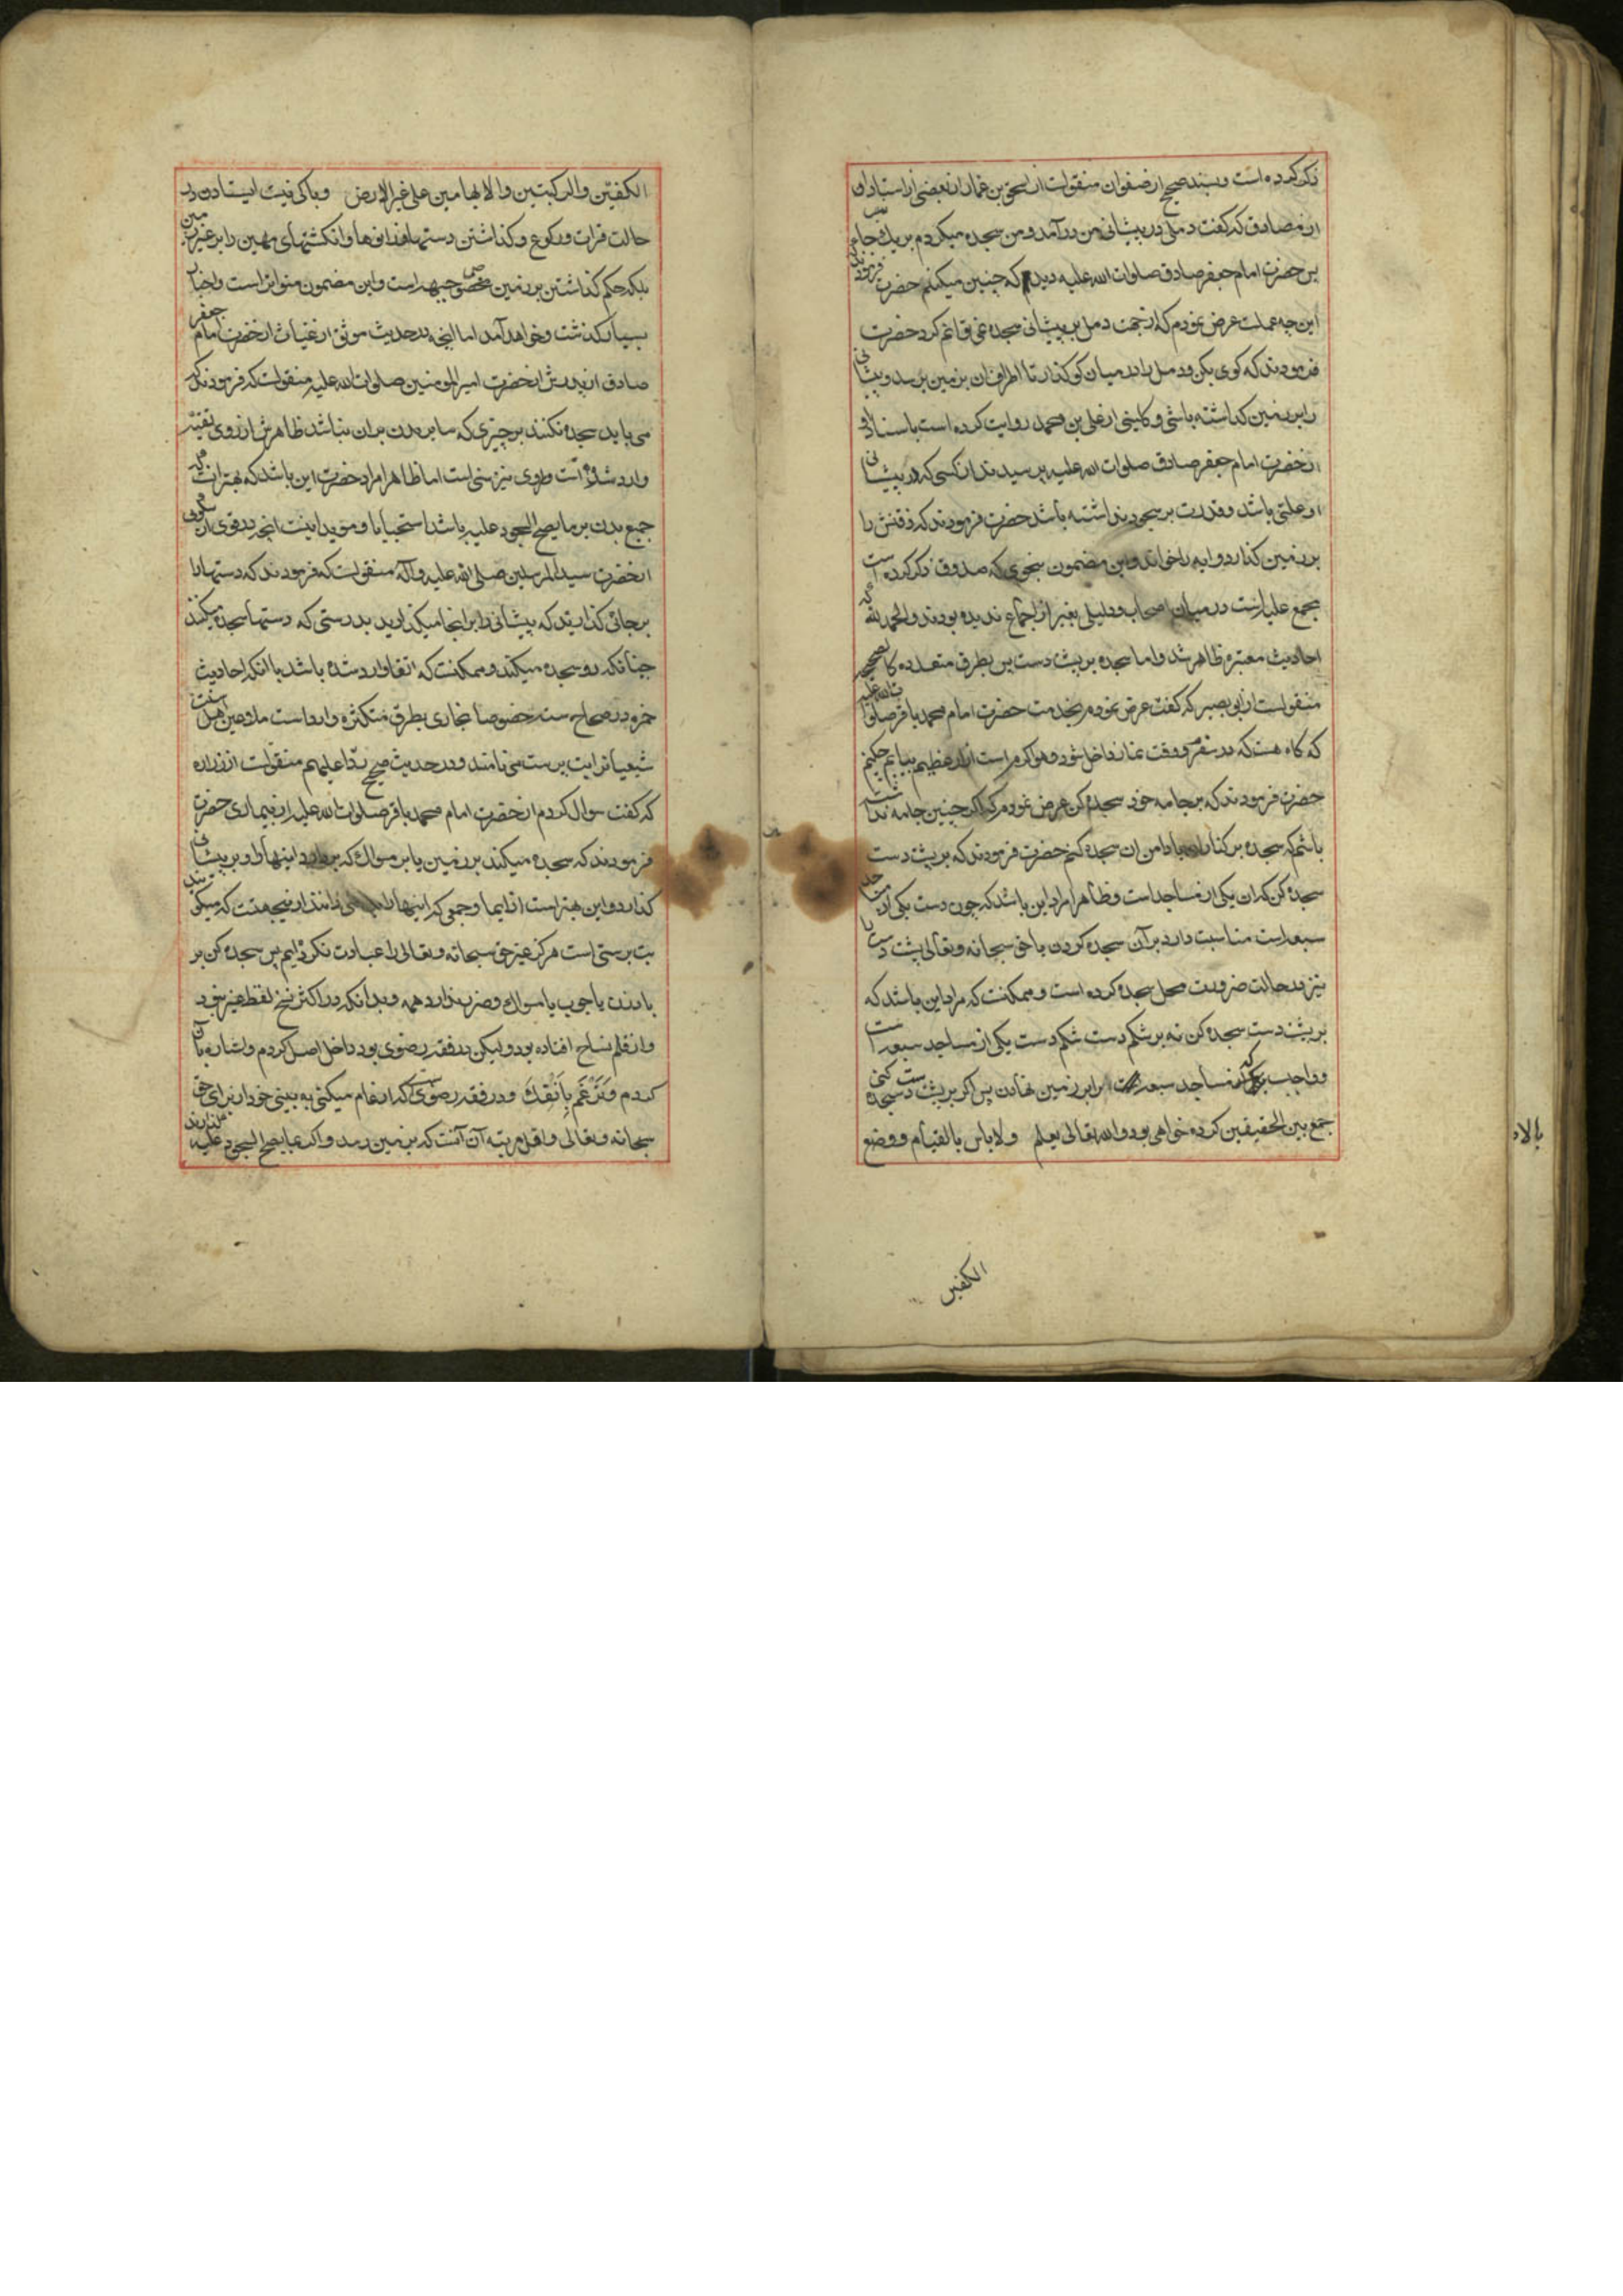 ذکر کرده است و بسند صحیح از صفوان منقولست از اسحق بن عمار از بعضی از استادان
از مصادف که گفت دملی در پیشانی من در آمد و من سجده میکردم بر یک جانب
پس حضرت امام جعفر صادق صلوات الله علیه دید که چنین میکنم حضرت فرمودند
این چه عملست عرض نمودم که از جهت دمل بر پیشانی سجده نمی توانم کرد حضرت
فرمودند که کوی بکن و دمل را در میان کو کذار تا اطراف ان بزمین برسد و پیشانی
را بر زمین کذاشته باشی و کلینی از علی بن محمد روایت کرده است باسناد او
انحضرت امام جعفر صادق صلوات الله علیه پرسیدند از کسی که در پیشانی
او علتی باشد و قدرت بر سجود نداشته باشد حضرت فرمودند که ذقنش را
بر زمین کذارد و ایه را خواند و این مضمون بنحوی که صدوق ذکر کرده است
مجمع علیه است در میان اصحاب و دلیلی بغیر از اجماع ندیده بودند و الحمد لله که
احادیث معتبره ظاهر شد و اما سجده بر پشت دست پس بطرق متعدده کالصحیح
منقولست از ابی بصیر که گفت عرض نمودم بخدمت حضرت امام محمد باقر صلوات الله علیه
که کاه هست که در سفرم و وقت نماز داخل شود و هوا کرم است از ان عظیم بیتابم چکنم
حضرت فرمودند که بر جامه خود سجده کن عرض نمودم که اکر چنین جامه نداشته
باشم که سجده بر کنار یا دامن ان سجده کنم حضرت فرمودند که بر پشت دست
سجده کن که ان یکی از مساجد است و ظاهرا مراد این باشد که چون دست یکی از مساجد
سبعه است مناسبت دارد بر آن سجده کردن یا حق سبحانه و تعالی پشت دست را
نیز در حالت ضرورت محل سجده کرده است و ممکنست که مراد این باشد که
بر پشت دست سجده کن نه بر شکم دست شکم دست یکی از مساجد سبعه است
و واجب که مساجد سبعه را بر زمین نهادن پس اکر بر پشت دست سجده کنی
جمع بین الحقیقین کرده خواهی بود و الله تعالی یعلم ولا باس بالقیام و وضع
الکفین
بالاد
الکفین والرکبتین والابهامین علی غیر الارض و باکی نیست ایستادن در
حالت قرات و رکوع و کذاشتن دستها و زانوها و انکشتهای مهین را بر غیر زمین
بلکه حکم کذاشتن بر زمین مخصوص جبهه است و این مضمون متواتر است و اخبار
بسیار کذشت و خواهد آمد اما انچه در حدیث موثق از غیاث از حضرت امام جعفر
صادق از پدرش از حضرت امیر المومنین صلوات الله علیه منقولست که فرمودند که
می باید سجده نکنند بر چیزی که سایر بدن بر ان نباشد ظاهرش از روی تقیه
وارد شده است و راوی نیز سنی است اما ظاهرا مراد حضرت این باشد که بهتر انست که
جمیع بدن بر ما یصح السجود علیه باشد استحبابا و موید اینست انچه در قوی از سکونی
از حضرت سید المرسلین صلی الله علیه و آله منقولست که فرمودند که دستها را
بر جائی کذارید که پیشانی را بر انجا میکذارید بدرستی که دستها سجده میکنند
چنانکه رو سجده میکند و ممکنست که اتقا وارد شده باشد با انکه احادیث
خمره در صحاح سته خصوصا بخاری بطرق متکثره وارد است ملاعین اهل سنت
شیعیان را بت پرست می نامند و در حدیث صحیح ردا علیهم منقولست از زراره
که کفت سوال کردم از حضرت امام محمد باقر صلوات الله علیه از بیماری حضرت
فرمودند که سجده میکند بر زمین یا بر مسواک که بردارد اینها را و بر پیشانی
کذارد و این بهتر است از ایما و جمعی که اینها را نمی دانند از نیجهتست که میکویند
بت پرستی است هرکز غیر حق سبحانه و تعالی را عبادت نکرده ایم پس سجده کن بر
بادزن یا چوب یا مسواک و ضرر ندارد همه و بدانکه در اکثر نسخ لفظ غیر نبود
و از قلم نساخ افتاده بود و لیکن در فقه رضوی بود داخل اصل کردم و اشاره بآن
کردم وَتَرْغَم بِاَنْفِكَ و در فقه رضوی است که ارغام میکنی به بینی خود از برای حق
سبحانه و تعالی و اقل مرتبه آن آنست که بزمین رسد و اکر بما یصح السجود علیه کذارند